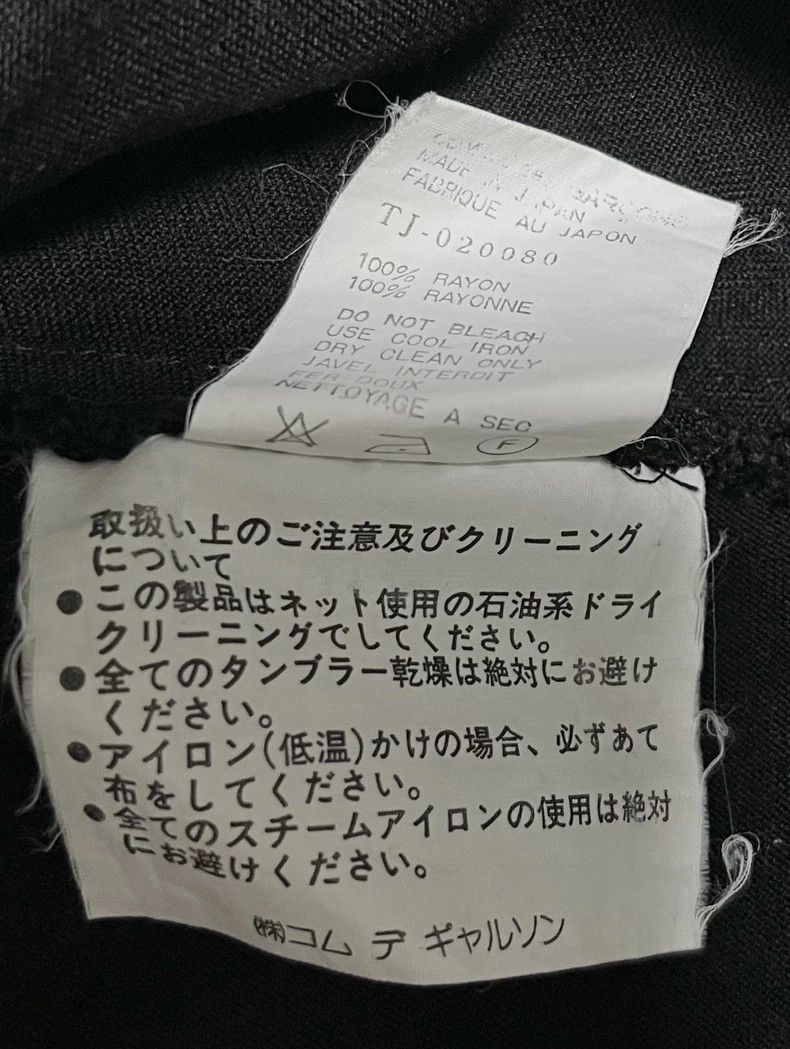 COMME des GARÇONS
MADE IN JAPAN
FABRIQUE AU JAPON
TJ-020080
100% RAYON
100% RAYONNE
DO NOT BLEACH
USE COOL IRON
DRY CLEAN ONLY
JAVEL INTERDIT
FER DOUX
NETTOYAGE A SEC
F
取扱い上のご注意及びクリーニング
について
●この製品はネット使用の石油系ドライ
クリーニングでしてください。
●全てのタンブラー乾燥は絶対にお避け
ください。
●アイロン(低温)かけの場合、必ずあて
布をしてください。
●全てのスチームアイロンの使用は絶対
にお避けください。
㈱コム デ ギャルソン